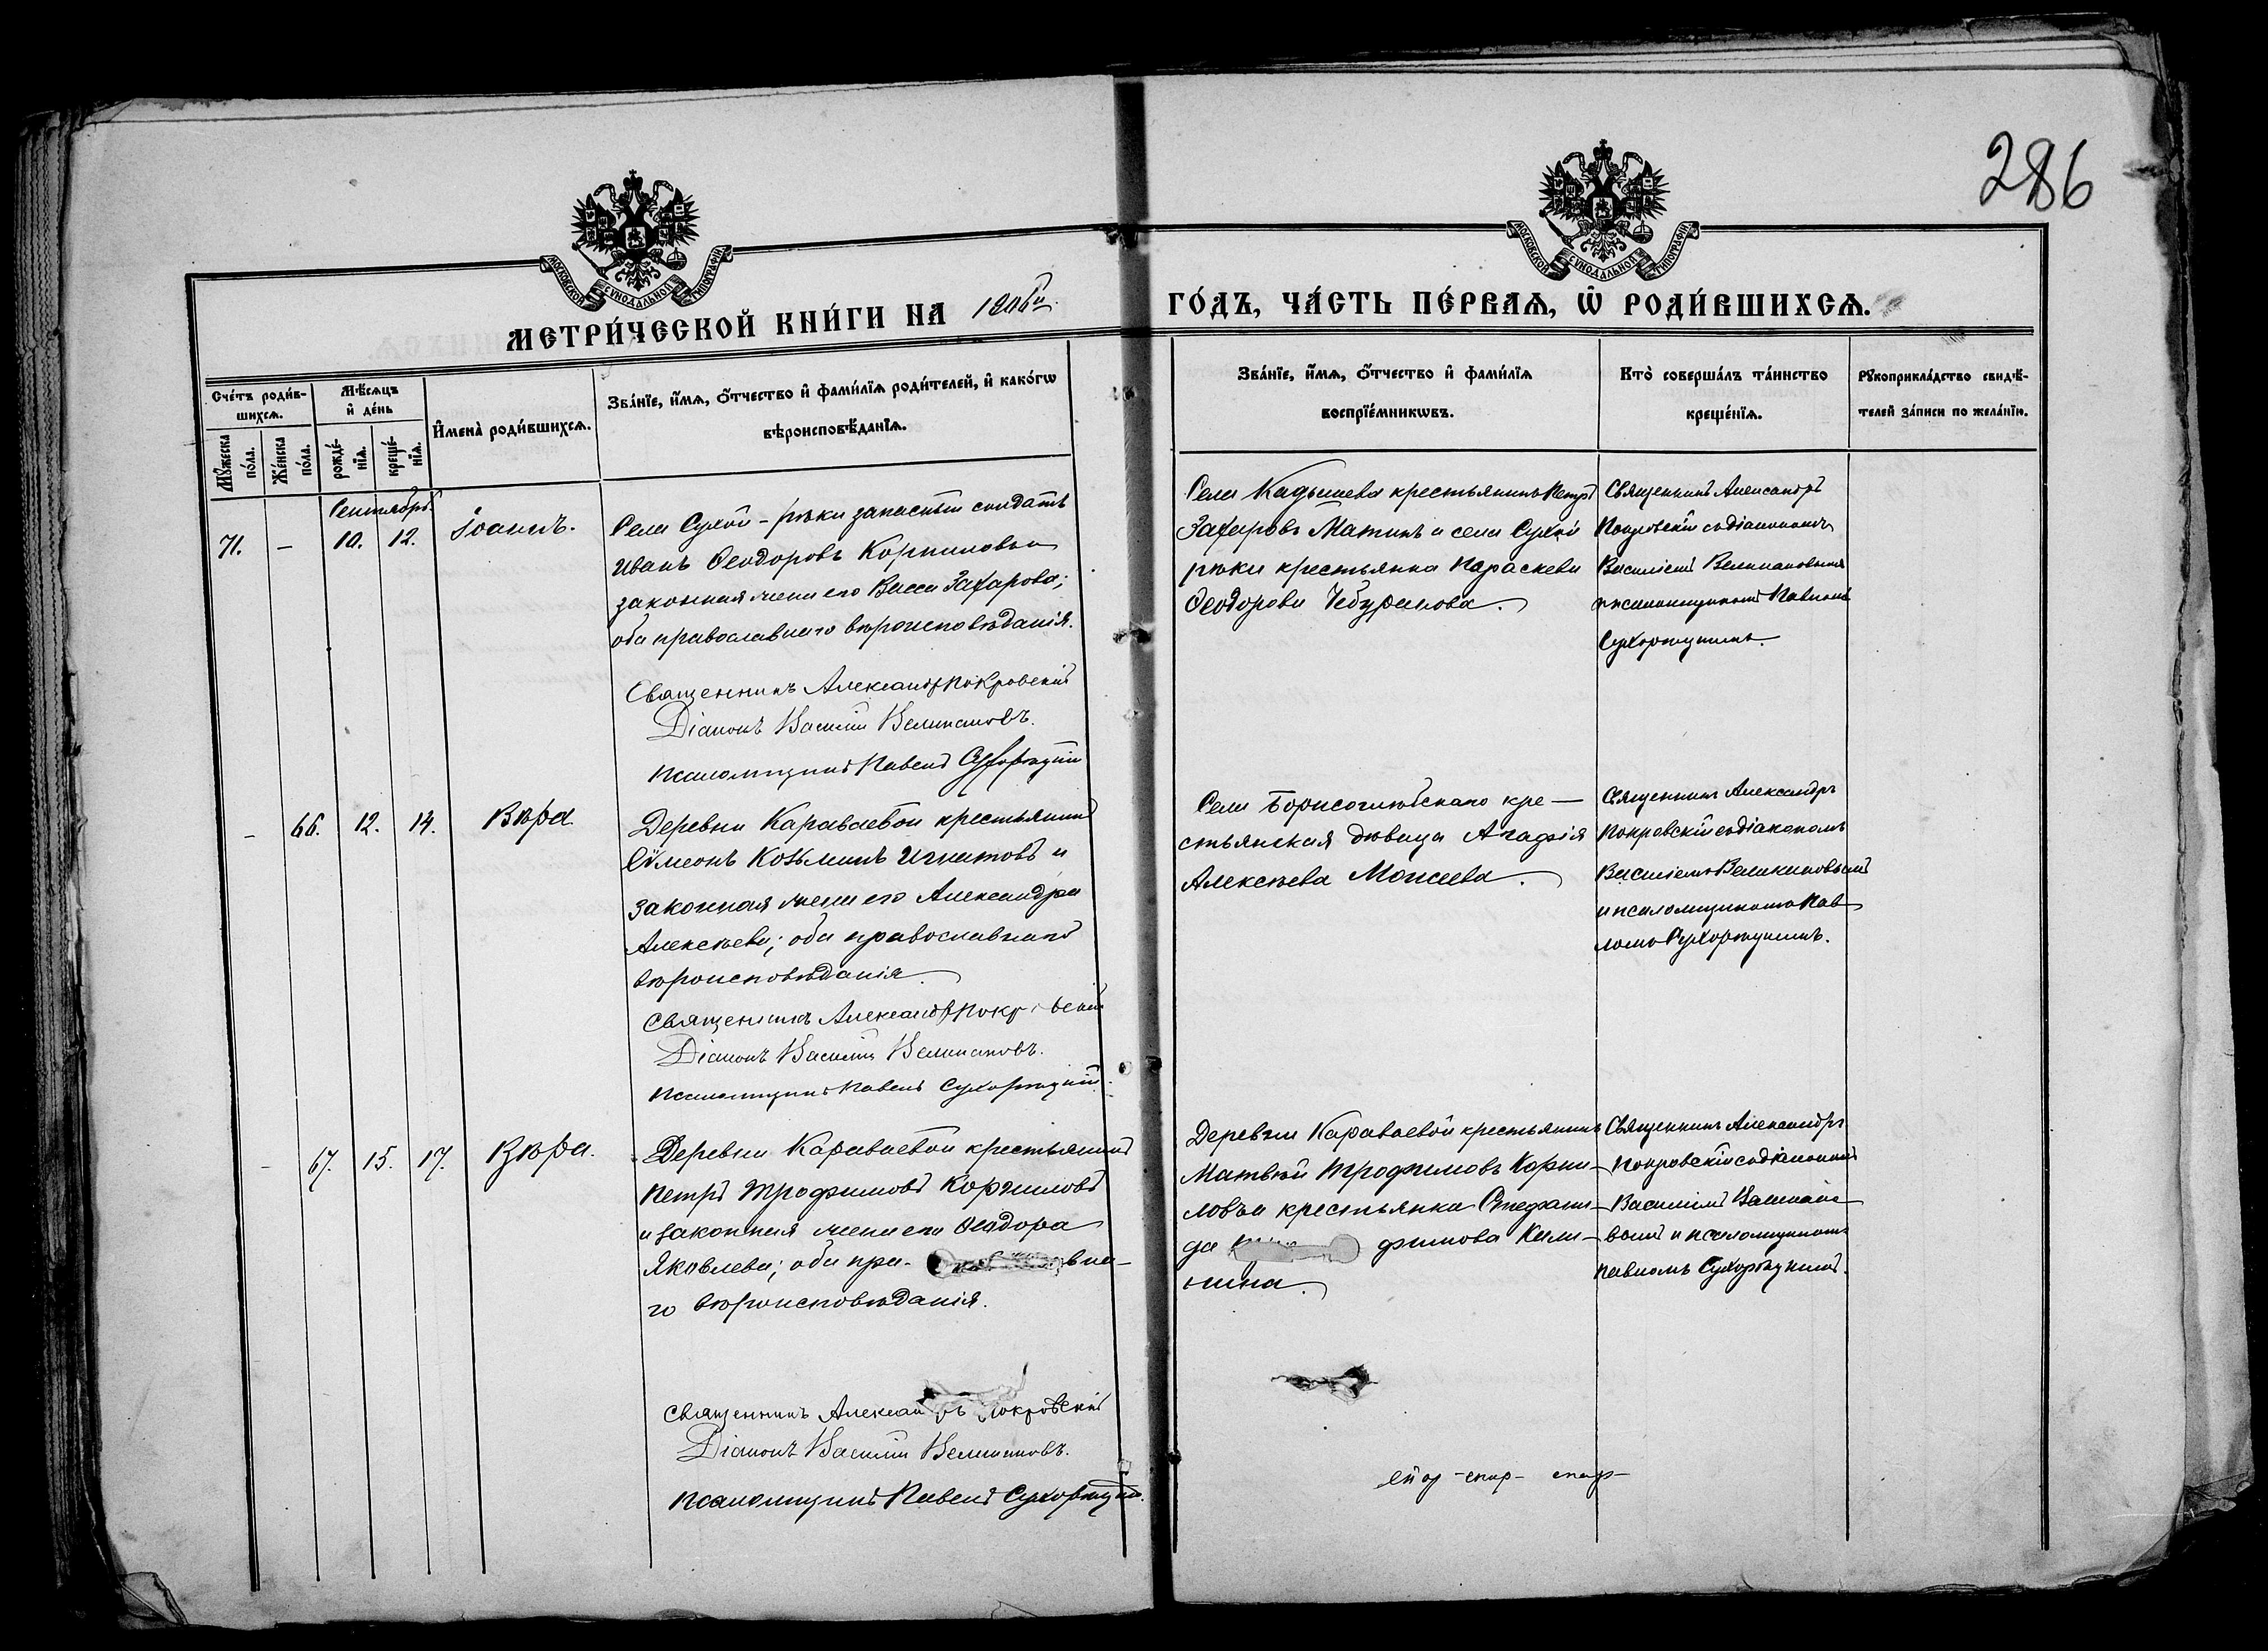 286
МОСКОВСКОЙ СѴНОДАЛЬНОЙ ТИПОГРАФІИ
МОСКОВСКОЙ СѴНОДАЛЬНОЙ ТИПОГРАФІИ
МЕТРИ́ЧЕСКОЙ КНИ́ГИ НА 1906й ГО́ДЪ, ЧА́СТЬ ПЕ́РВАѦ, Ѽ РОДИ́ВШИХСѦ.
Сче́тъ роди́в-
шихсѧ.
Мꙋ́жеска
по́ла.
Же́нска
по́ла.
Мѣ́сѧцъ
и҆ де́нь
рожде́-
нїѧ.
креще́-
нїѧ.
И҆мена̀ роди́вшихсѧ.
Зва́нїе, и҆́мѧ, ѻ҆́тчество и҆ фами́лїѧ роди́телей, и҆ како́гѡ
вѣроисповѣ́данїѧ.
Зва́нїе, и҆́мѧ, ѻ҆́тчество и҆ фами́лїѧ
воспрїе́мникѡвъ.
Кто̀ соверша́лъ та́инство
креще́нїѧ.
Рꙋкоприкла́дство свидѣ́-
телей за́писи по жела́нїю.
Сентябрь.
71. – 10. 12. Іоаннъ.
Села Сухой-рѣки запасный солдатъ
Иванъ Ѳеодоровъ Корниловъ и
законная жена его Васса Захарова;
оба православнаго вѣроисповѣданія.
Священникъ Александръ Покровскій
Діаконъ Василій Великановъ.
Псаломщикъ Павелъ
Села Кадышева крестьянинъ Петръ
Захаровъ Матинъ и села Сухой
рѣки крестьянка Параскева
Ѳеодорова
Священникъ Александръ
Покровскій съ діакономъ
Василіемъ Великановымъ
и псаломщикомъ Павломъ
– 66. 12. 14. Вѣра
Деревни Караваевой крестьянинъ
Сѵмеонъ Козьминъ Игнатовъ и
законная жена его Александра
Алексѣева; оба православнаго
вѣроисповѣданія.
Священникъ Александръ Покровскій
Діаконъ Василій Великановъ.
Псаломщикъ Павелъ
Села Борисоглѣбскаго кре-
стьянская дѣвица Агафія
Алексѣева Моисеева.
Священникъ Александръ
Покровскій съ діакономъ
Василіемъ Великановымъ
и псаломщикомъ Пав-
ломъ
– 67. 15. 17. Вѣра.
Деревни Караваевой крестьянинъ
Петръ Трофимовъ Корниловъ
и законная жена его Ѳеодора
Яковлева; оба пра- вна-
го вѣроисповѣданія.
Священникъ Александръ Покровскій
Діаконъ Василій Великановъ.
Псаломщикъ Павелъ
Деревни Караваевой крестьянинъ
Матвѣй Трофимовъ Корни-
ловъ и крестьянка Стефани-
да фимова Кали-
нина.
Священникъ Александръ
Покровскій съ діакономъ
Василіемъ Великано-
вымъ и псаломщикомъ
Павломъ